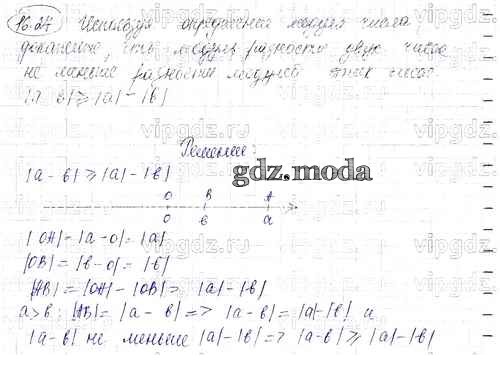 16.27 Используя определение модуля числа,
докажите, что модуль разности двух чисел
не меньше разности модулей этих чисел
|a-в| ⩾ |a| - |в|
Решение:
|a-в| ⩾ |a| - |в|
gdz.moda
O B A
O в a
|OA| = |a-o| = |a|
|OB| = |в-o| = |в|
|AB| = |OA| - |OB| = |a| - |в|
a>в: |AB| = |a-в| => |a-в| = |a| - |в| и
|a-в| не меньше |a| - |в| => |a-в| ⩾ |a| - |в|
vipgdz.ru